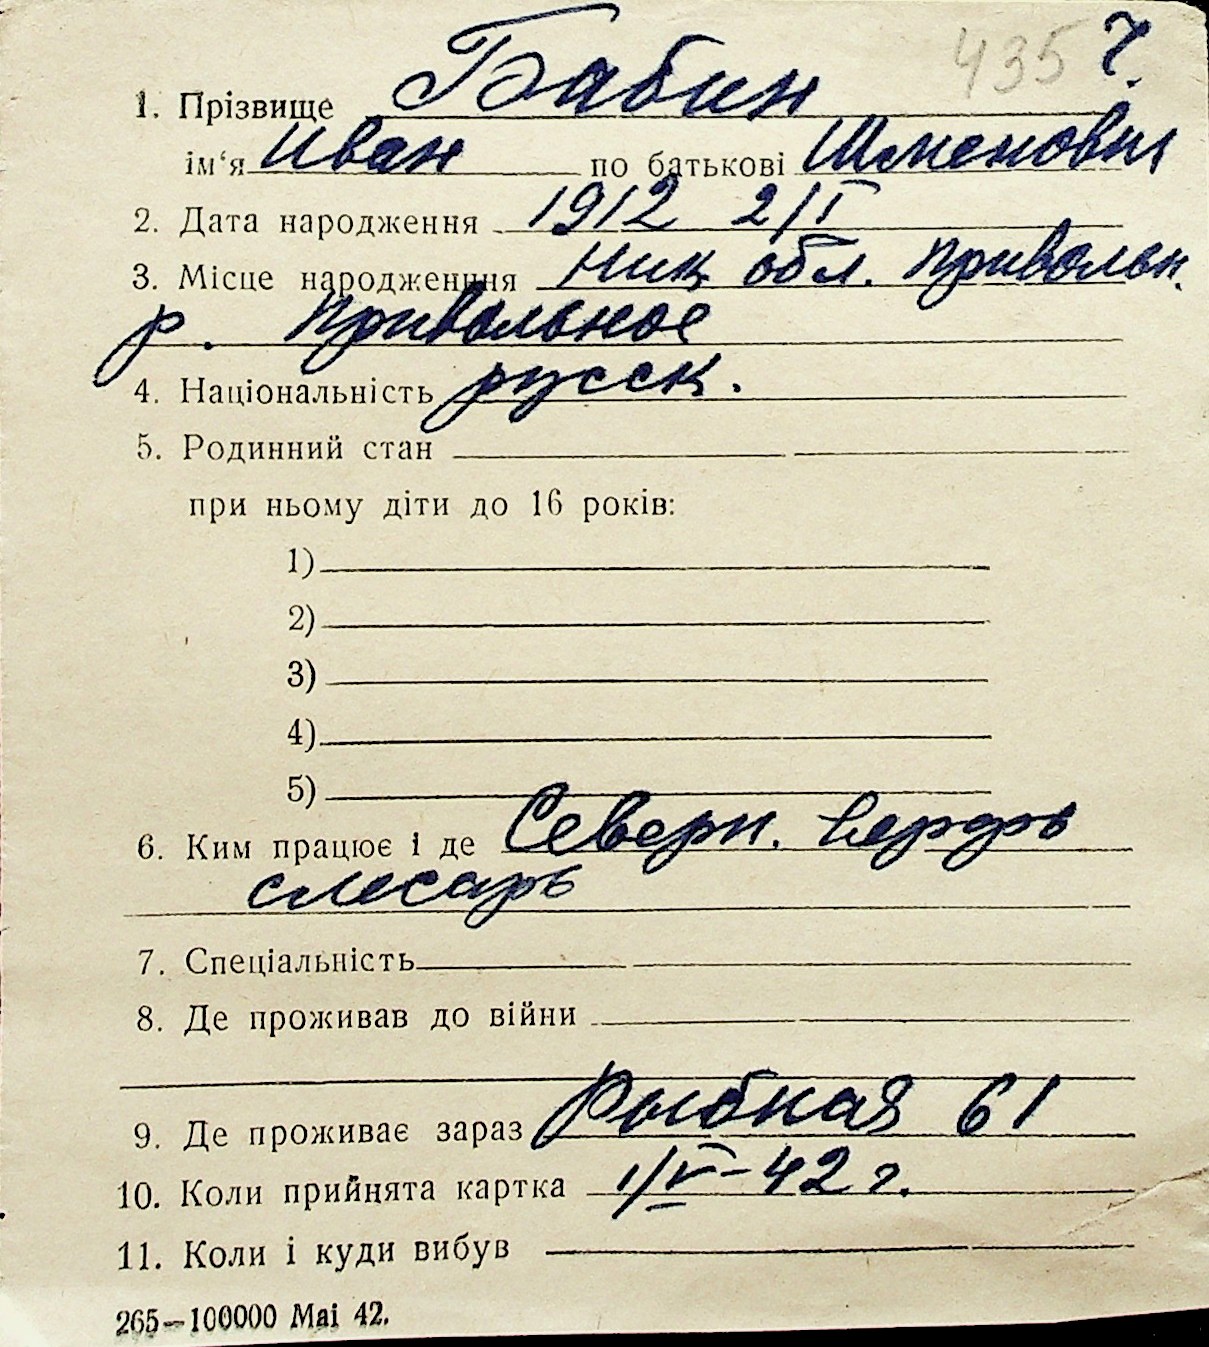 435 7.
1. Прізвище Бабин
ім‘я Иван по батькові
2. Дата народження 1912 2/I
3. Місце народження Ник обл. Привольн.
р. Привольное
4. Національність русск.
5. Родинний стан
при ньому діти до 16 років:
1)
2)
3)
4)
5)
6. Ким працює і де Северн. верфь
слесарь
7. Спеціальність
8. Де проживав до війни
9. Де проживає зараз Рыбная 61
10. Коли прийнята картка 1/V-42 г.
11. Коли і куди вибув
265—100000 Mai 42.